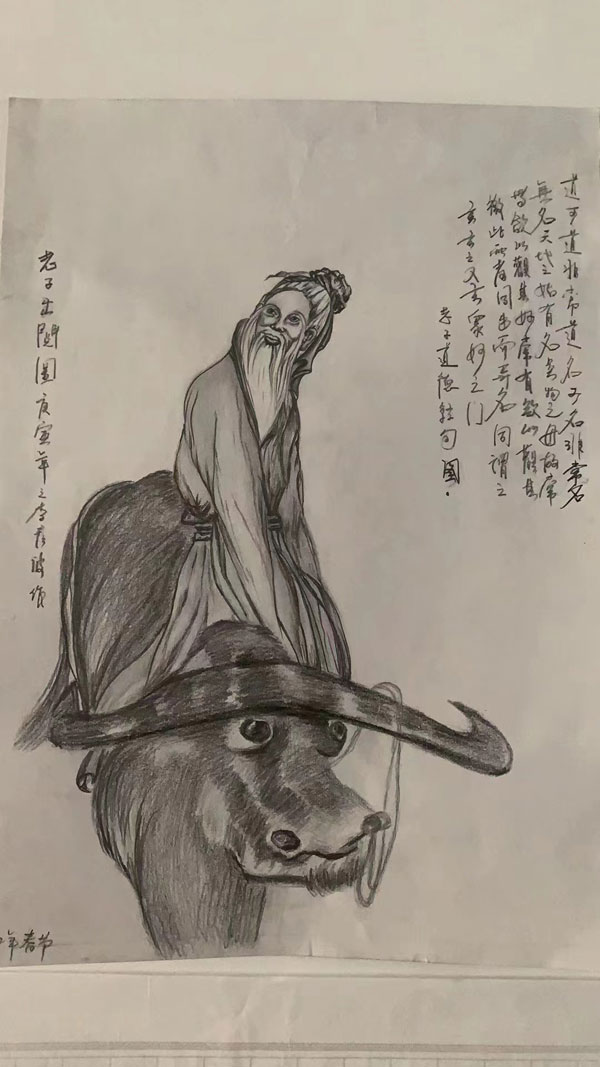 道可道非常道名可名非常名
無名天地之始有名萬物之母故常
無欲以觀其妙常有欲以觀其
徼此兩者同出而异名同謂之
玄玄之又玄眾妙之门
老子道德经句圖.
老子出關圖庚寅年之李波作
年春节